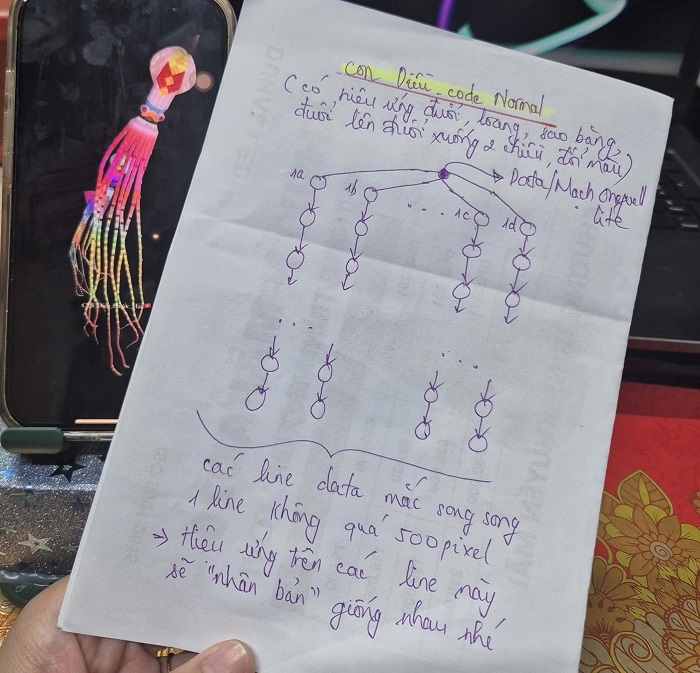 con Diều code Normal
(có hiệu ứng đuổi, loang, sao băng,
đuổi lên đuổi xuống 2 chiều, đổi màu)
1a
1b
...
1c
1d
Data/Mach
lite
...
...
các line data mắc song song
1 line không quá 500 pixel
→ Hiệu ứng trên các line này
sẽ "nhân bản" giống nhau nhé